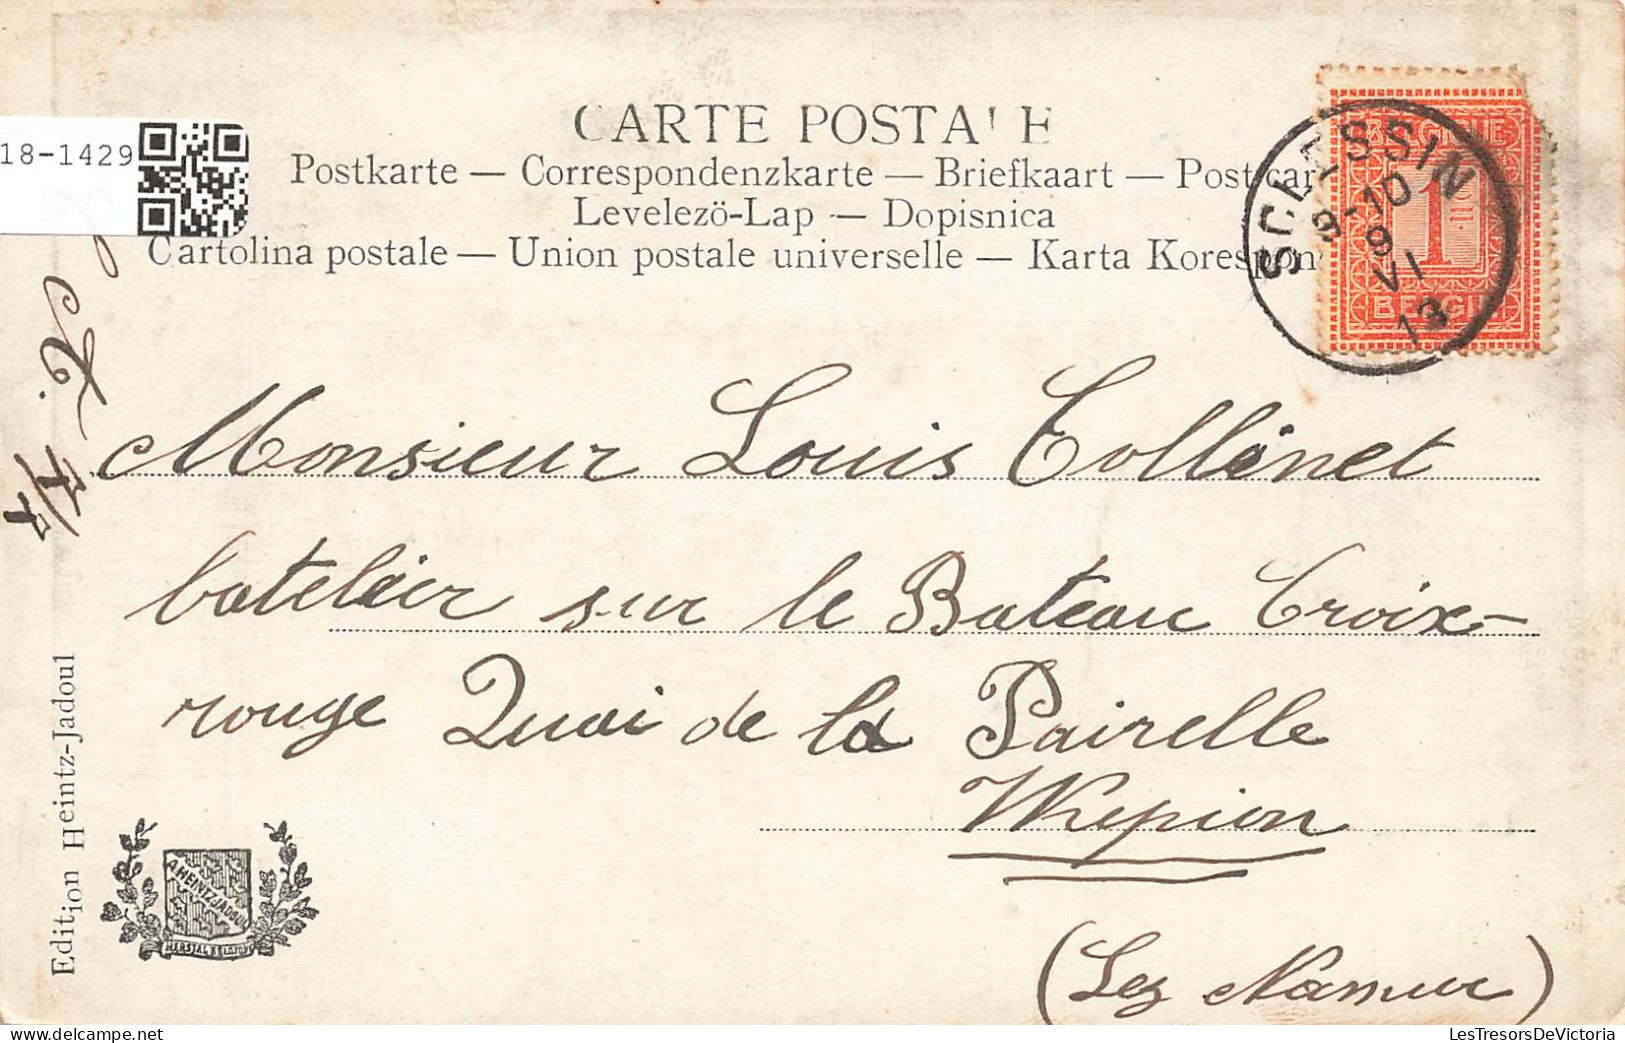 CARTE POSTALE
18-1429
Postkarte — Correspondenzkarte — Briefkaart — Postcar
Levelezö-Lap — Dopisnica
Cartolina postale — Union postale universelle — Karta Korespon
BELGIQUE
1
BELGIE
SCLESSIN
9-10
9
VI
13
Monsieur Louis Collinet
batelier sur le Bateau Croix-
rouge Quai de la Pairelle
Wepion
(Lez Namur)
Edition Heintz-Jadoul
A. HEINTZ-JADOUL
HERSTAL BELGIQUE
LesTresorsDeVictoria.com